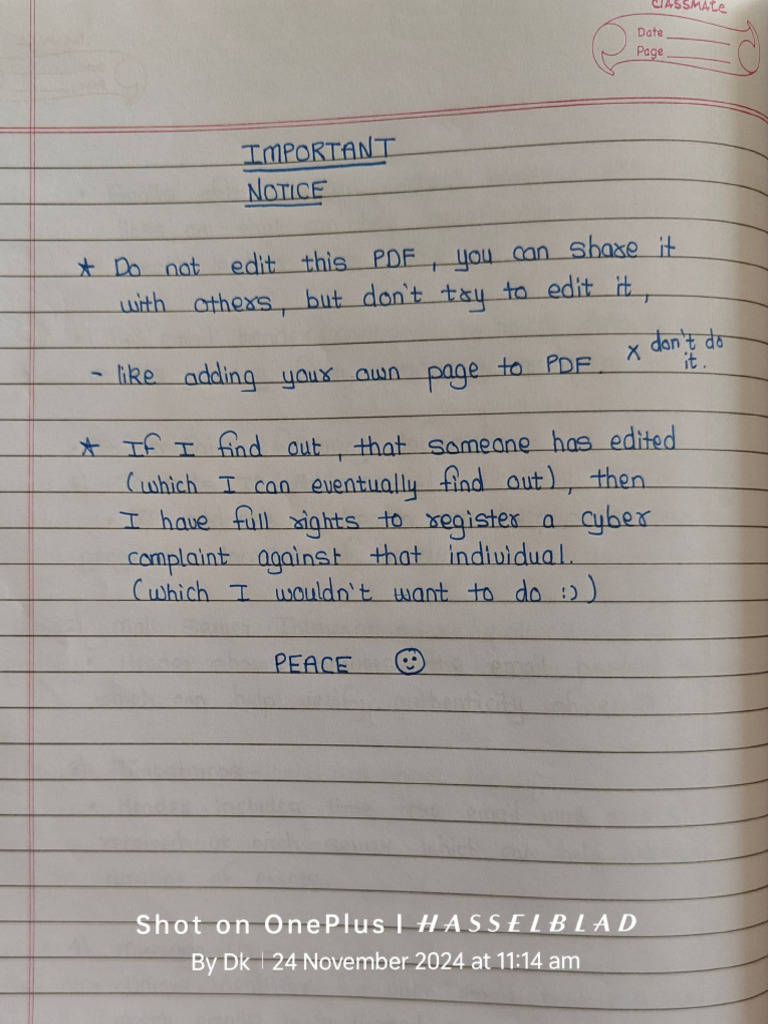 CLASSMATE
Date
Page
IMPORTANT
NOTICE
★ Do not edit this PDF, you can share it
with others, but don't try to edit it,
- like adding your own page to PDF. x don't do
it.
★ If I find out, that someone has edited
(which I can eventually find out), then
I have full rights to register a cyber
complaint against that individual.
(which I wouldn't want to do :))
PEACE ☺
Shot on OnePlus | HASSELBLAD
By Dk | 24 November 2024 at 11:14 am